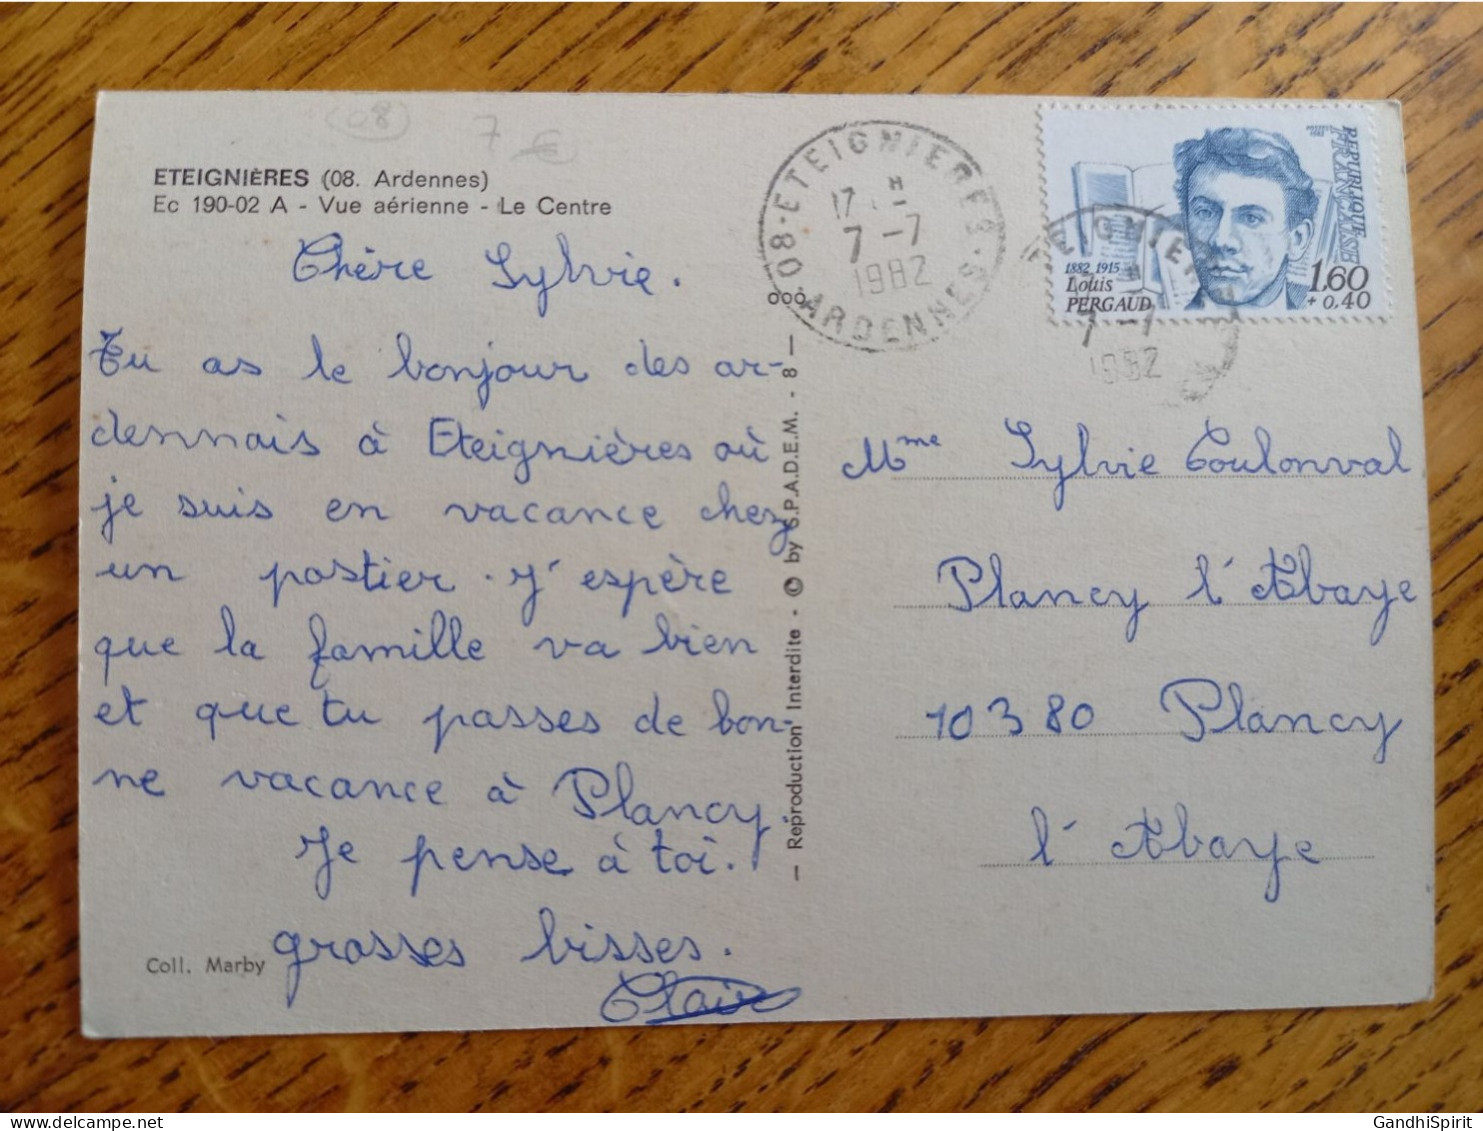 08
7 €
ETEIGNIÈRES (08. Ardennes)
Ec 190-02 A - Vue aérienne - Le Centre
Chère Sylvie.
Tu as le bonjour des ar-
dennais à Eteignières où
je suis en vacance chez
un postier. J'espère
que la famille va bien
et que tu passes de bon-
ne vacance à Plancy.
Je pense à toi.
grosses bisses.
Claire
Coll. Marby
— Reproduction Interdite - © by S.P.A.D.E.M. - 8 —
08 · ETEIGNIERES · ARDENNES
17 H
7 -7
1982
RÉPUBLIQUE
FRANÇAISE
POSTES
1982
1882 1915
Louis
PERGAUD
1,60
+ 0,40
7 -7
1982
Mme Sylvie Coulonval
Plancy l'Abaye
10380 Plancy
l'Abaye
GandhiSpirit